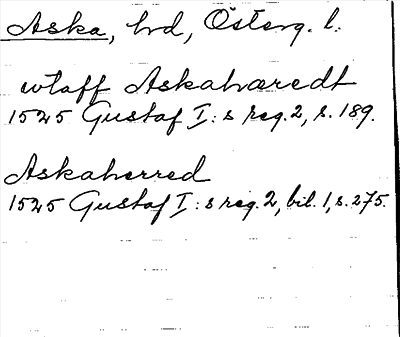 Aska, hd, Österg. l.
wtaff Askahæredt
1525 Gustaf I:s reg. 2, s. 189.
Askaherred
1525 Gustaf I:s reg. 2, bil. 1, s. 275.